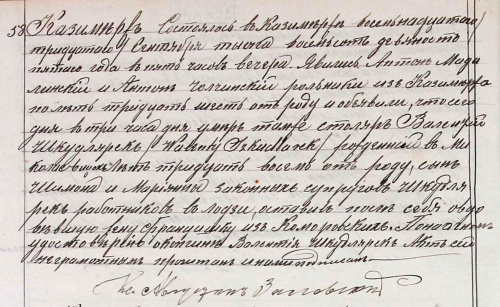 58 Казимержъ Состоялось в Казимержѣ восемьнадцатаго/
тридцатаго/ Сентября тысяча восемьсотъ девяносто
пятаго года в пять часовъ вечера. Явились Антонъ Мада
линскій и Антонъ рольники изъ Казимержа
по лѣтъ тридцать шесть отъ роду и объявили, что сего
дня в три часа дня умеръ столяръ Валентій
Шкудлярекъ /Walenty Szkudlarek/ рожденный в Ми
лѣтъ тридцать восемь отъ роду, сынъ
Шимона и Маріянны законныхъ супруговъ Шкудля
рекъ работниковъ в Лодзи, оставивъ послѣ себя овдо
вѣвшую жену Францишку изъ Коморовскихъ. По
удостовѣреніи кончины Валентія Шкудлярекъ Актъ сей
неграмотнымъ прочитанъ и нами подписанъ
Кс. Августинъ